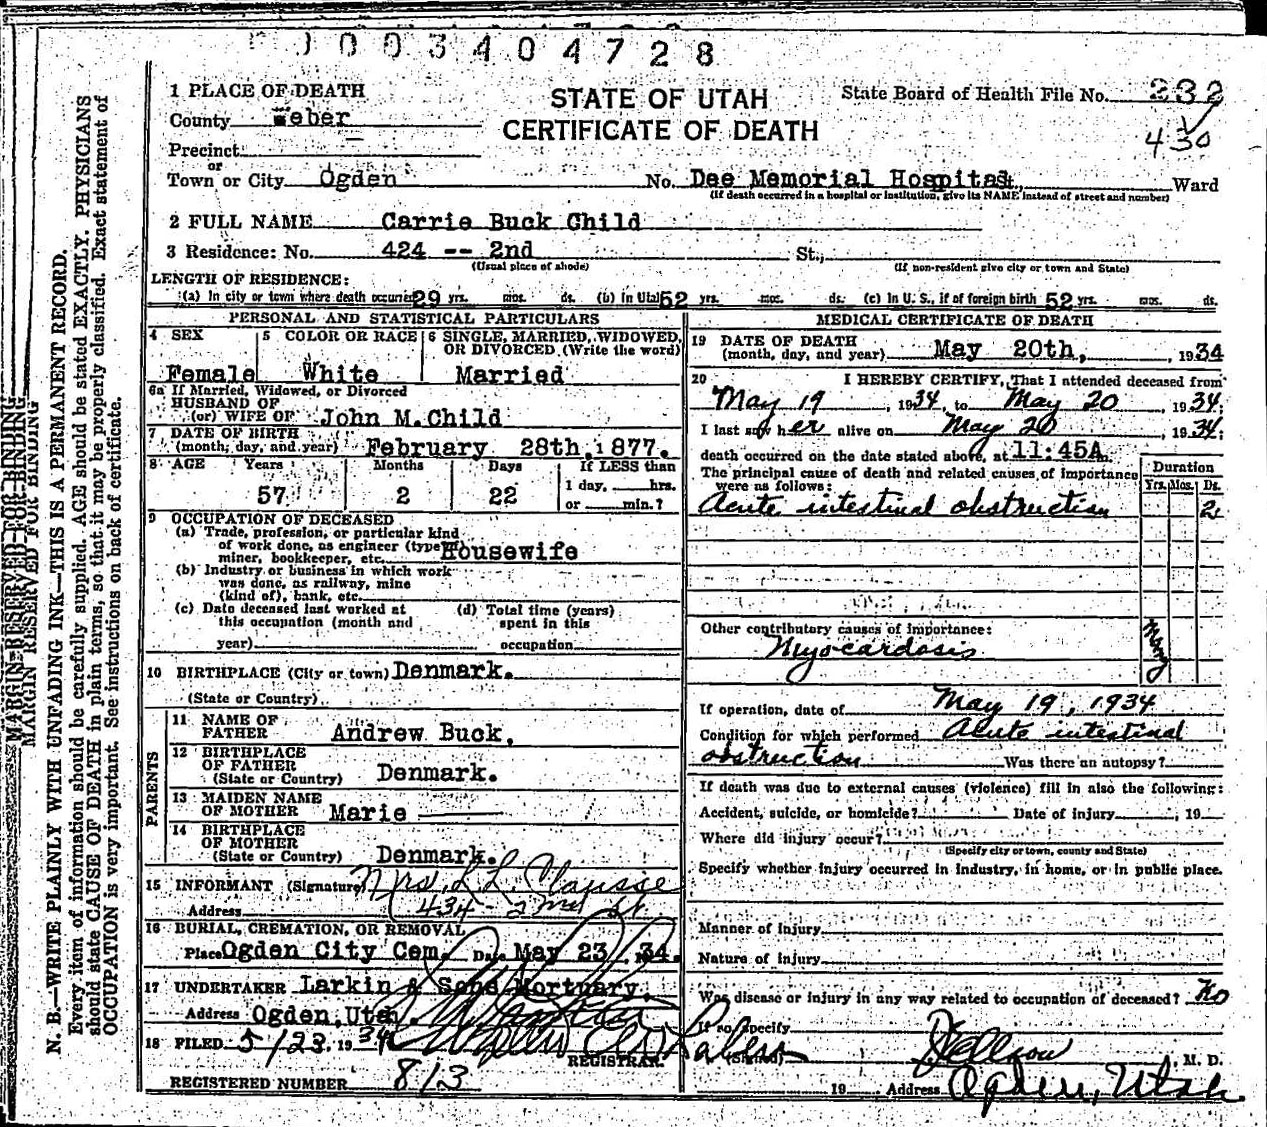 003404728
1 PLACE OF DEATH
STATE OF UTAH
CERTIFICATE OF DEATH
State Board of Health File No. 232
430
County Weber
Precinct
or
Town or City Ogden No. Dee Memorial Hospital St., Ward
(If death occurred in a hospital or institution, give its NAME instead of street and number)
2 FULL NAME Carrie Buck Child
3 Residence: No. 424 -- 2nd St.,
(Usual place of abode) (If non-resident give city or town and State)
LENGTH OF RESIDENCE:
(a) In city or town where death occurred 29 yrs. mos. ds. (b) In Utah 52 yrs. mos. ds. (c) In U. S., if of foreign birth 52 yrs. mos. ds.
PERSONAL AND STATISTICAL PARTICULARS
4 SEX 5 COLOR OR RACE 6 SINGLE, MARRIED, WIDOWED, OR DIVORCED (Write the word)
Female White Married
6a If Married, Widowed, or Divorced
HUSBAND OF
(or) WIFE OF John M. Child
7 DATE OF BIRTH
(month, day, and year) February 28th, 1877.
8 AGE Years Months Days If LESS than
57 2 22 1 day, hrs.
or min.?
9 OCCUPATION OF DECEASED
(a) Trade, profession, or particular kind
of work done, as engineer (type
miner, bookkeeper, etc. Housewife
(b) Industry or business in which work
was done, as railway, mine
(kind of), bank, etc.
(c) Date deceased last worked at (d) Total time (years)
this occupation (month and spent in this
year) occupation
10 BIRTHPLACE (City or town) Denmark.
(State or Country)
PARENTS
11 NAME OF
FATHER Andrew Buck,
12 BIRTHPLACE
OF FATHER
(State or Country) Denmark.
13 MAIDEN NAME
OF MOTHER Marie
14 BIRTHPLACE
OF MOTHER
(State or Country) Denmark.
15 INFORMANT (Signature) Mrs. L. L. Classe
Address 434 - 2nd St.
16 BURIAL, CREMATION, OR REMOVAL
Place Ogden City Cem. Date May 23, 1934.
17 UNDERTAKER Larkin & Sons Mortuary.
Address Ogden, Utah.
18 FILED 5/23, 1934
REGISTRAR.
REGISTERED NUMBER 813
MEDICAL CERTIFICATE OF DEATH
19 DATE OF DEATH
(month, day, and year) May 20th, , 1934
20 I HEREBY CERTIFY, That I attended deceased from
May 19, 1934 to May 20, 1934;
I last saw her alive on May 20, 1934;
death occurred on the date stated above, at 11:45A.
The principal cause of death and related causes of importance
were as follows:
Duration
Yrs. Mos. Ds.
Acute intestinal obstruction 2
Other contributory causes of importance:
Myocardosis Many
If operation, date of May 19, 1934
Condition for which performed Acute intestinal
obstruction Was there an autopsy?
If death was due to external causes (violence) fill in also the following:
Accident, suicide, or homicide? Date of injury , 19
Where did injury occur?
(Specify city or town, county and State)
Specify whether injury occurred in industry, in home, or in public place.
Manner of injury
Nature of injury
Was disease or injury in any way related to occupation of deceased? No
If so, specify
(Signed) , M. D.
19 Address Ogden, Utah
MARGIN RESERVED FOR BINDING
MARGIN RESERVED FOR BINDING
N. B.—WRITE PLAINLY WITH UNFADING INK—THIS IS A PERMANENT RECORD.
Every item of information should be carefully supplied. AGE should be stated EXACTLY. PHYSICIANS
should state CAUSE OF DEATH in plain terms, so that it may be properly classified. Exact statement of
OCCUPATION is very important. See instructions on back of certificate.